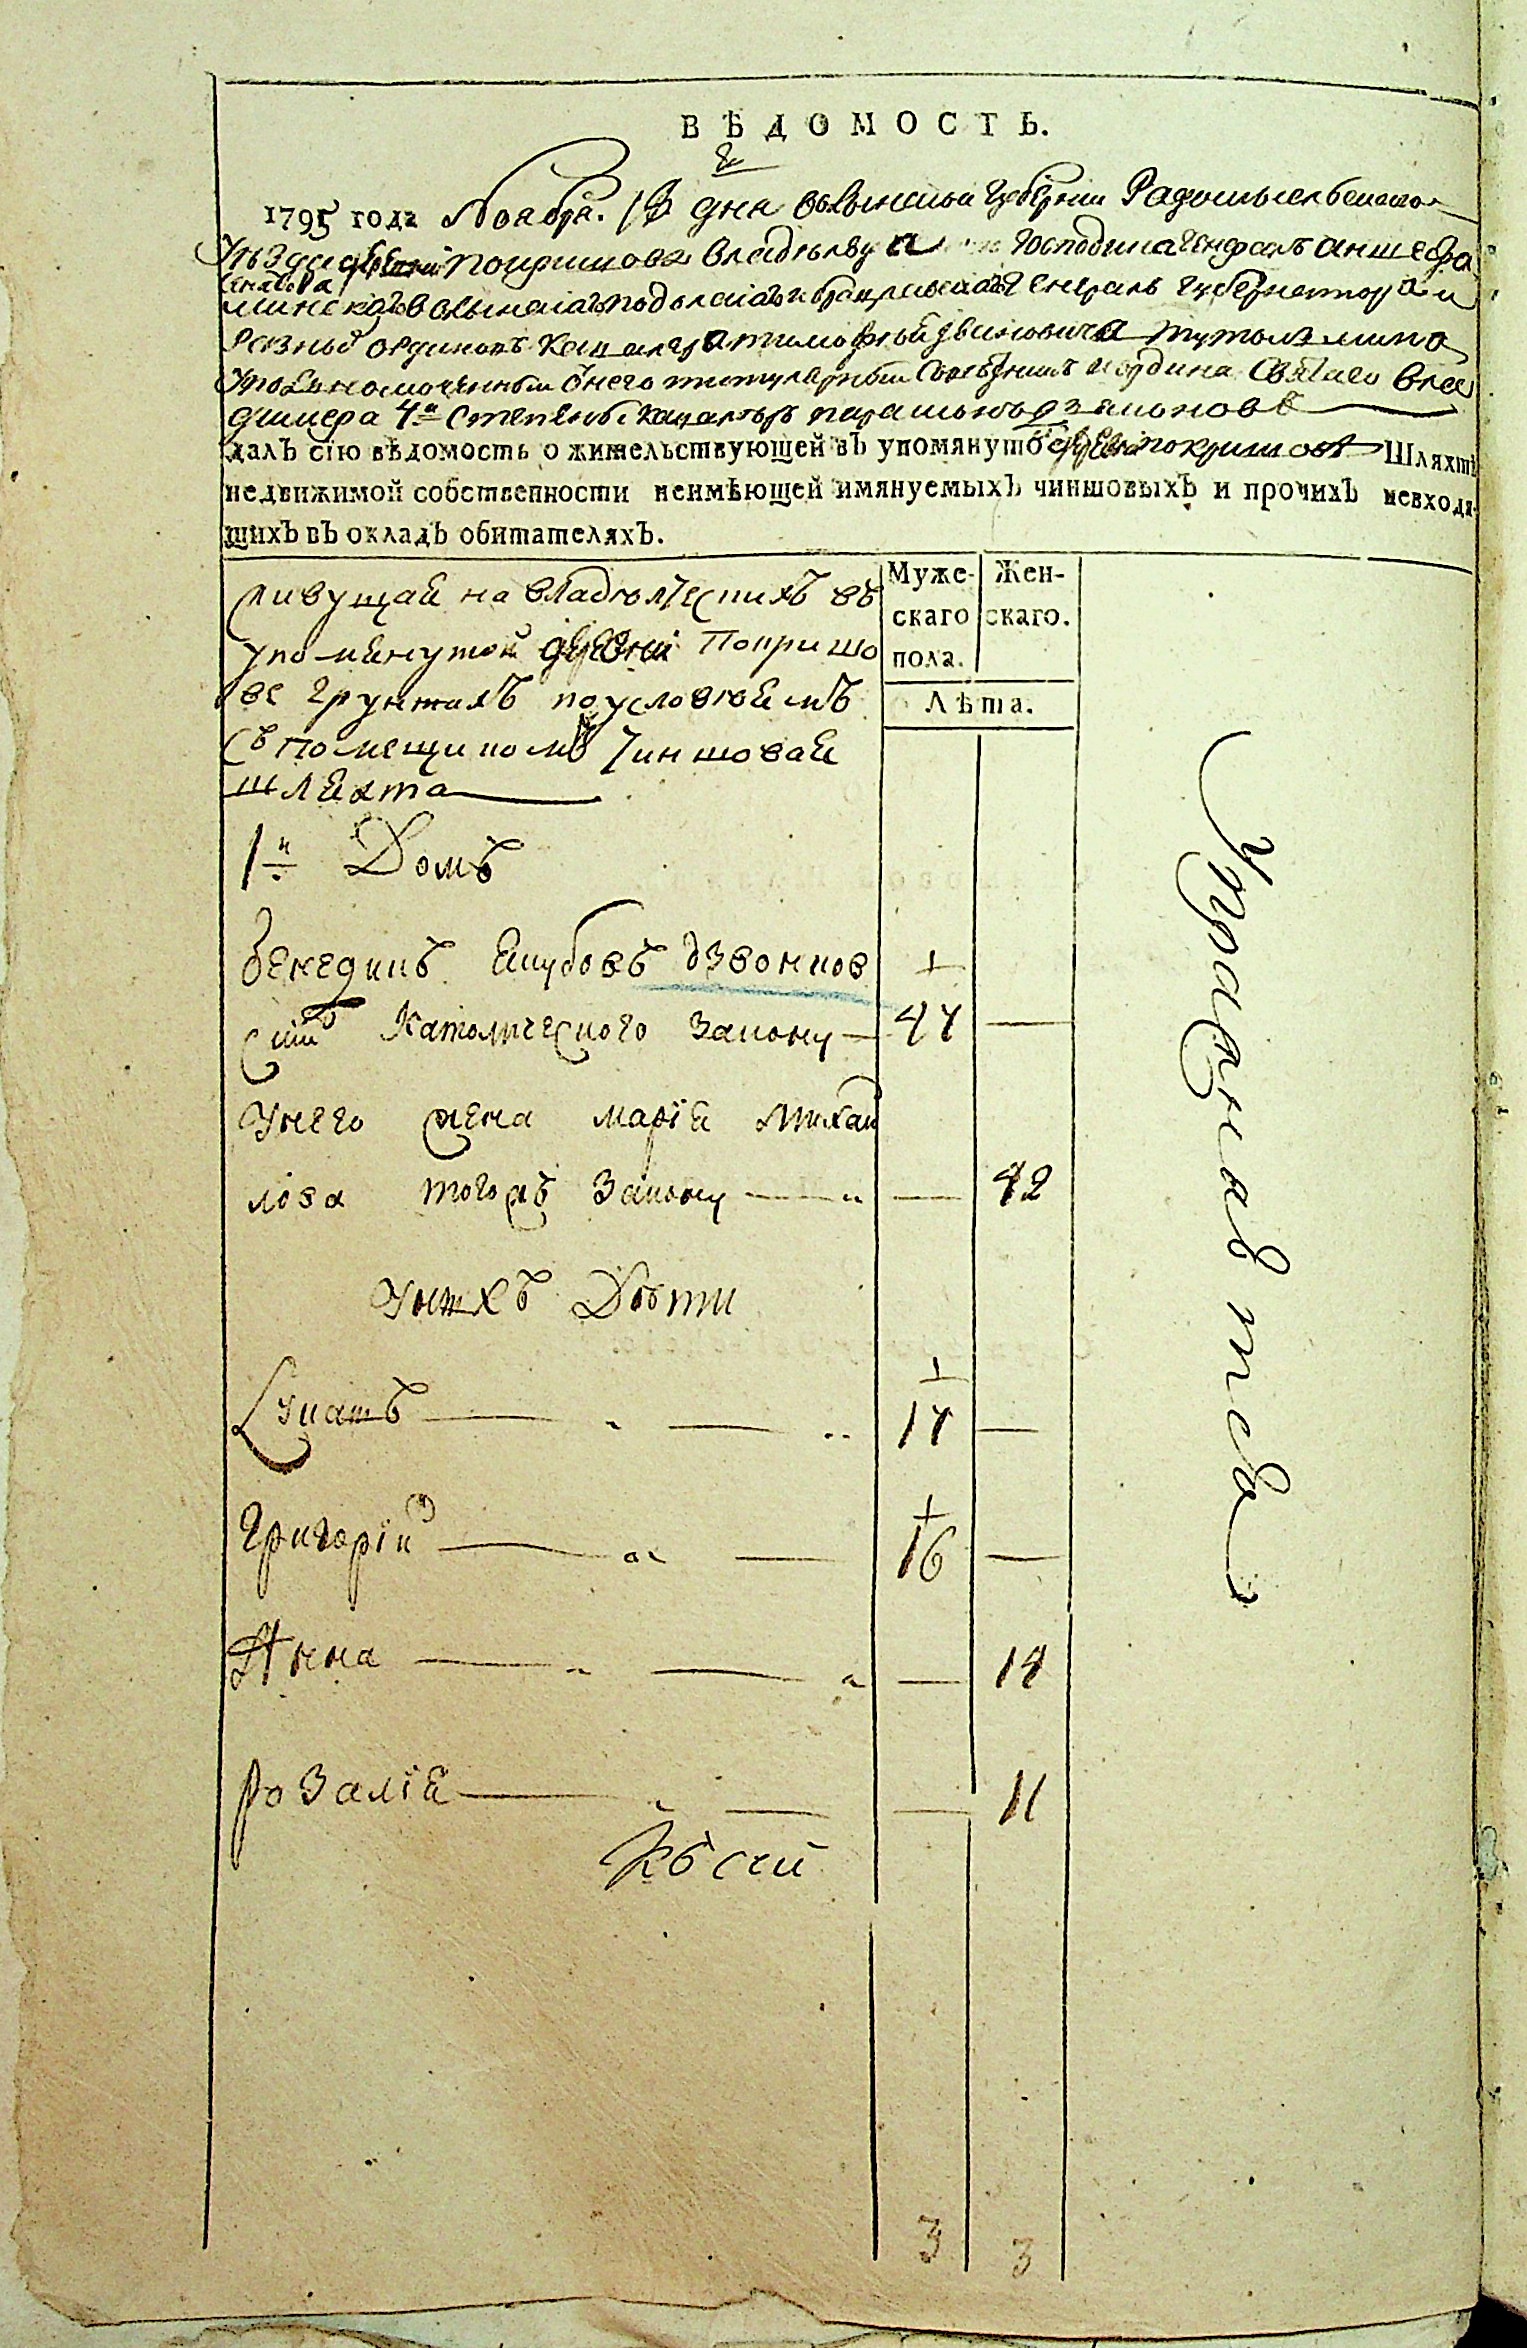 ВѢДОМОСТЬ.
1795 года Ноября. дня волынской губернии Радомысльскаго
Уезда деревни покришова владельца господина генералъ аншефа
сенатора
минскаго волынскаго подольскаго и брацлавскаго генералъ губернатора и
разныхъ орденовъ кавалера тимофея ивановича тутолмина
уполномоченный отнего титулярный советникъ и ордина святаго вла
димера 4й степени кавалеръ
далЪ сїю вѣдомость о жительствующей вЪ упомянутой деревне покришове Шляхтѣ
недвижимой собственности неимѣющей имянуемыхЪ чиншовыхЪ и прочихЪ невходя-
щихЪ вЪ окладЪ обитателяхЪ.
Муже- Жен-
скаго скаго.
пола.
Лѣта.
живущая на владелческихъ въ
упомянутой деревни Покришо
ве грунтахъ поусловіямъ
съ помещикомъ чиншовая
шляхта
1й Домъ
бенедиктъ якубовъ дзвонков
скій католического закону — 47 —
Унего жена марія михай
лова тогожъ закону — — 42
Унихъ Дѣти
Лукашъ — 17 —
григорій — 16 —
Анна — — 14
розалія — — 11
3 3